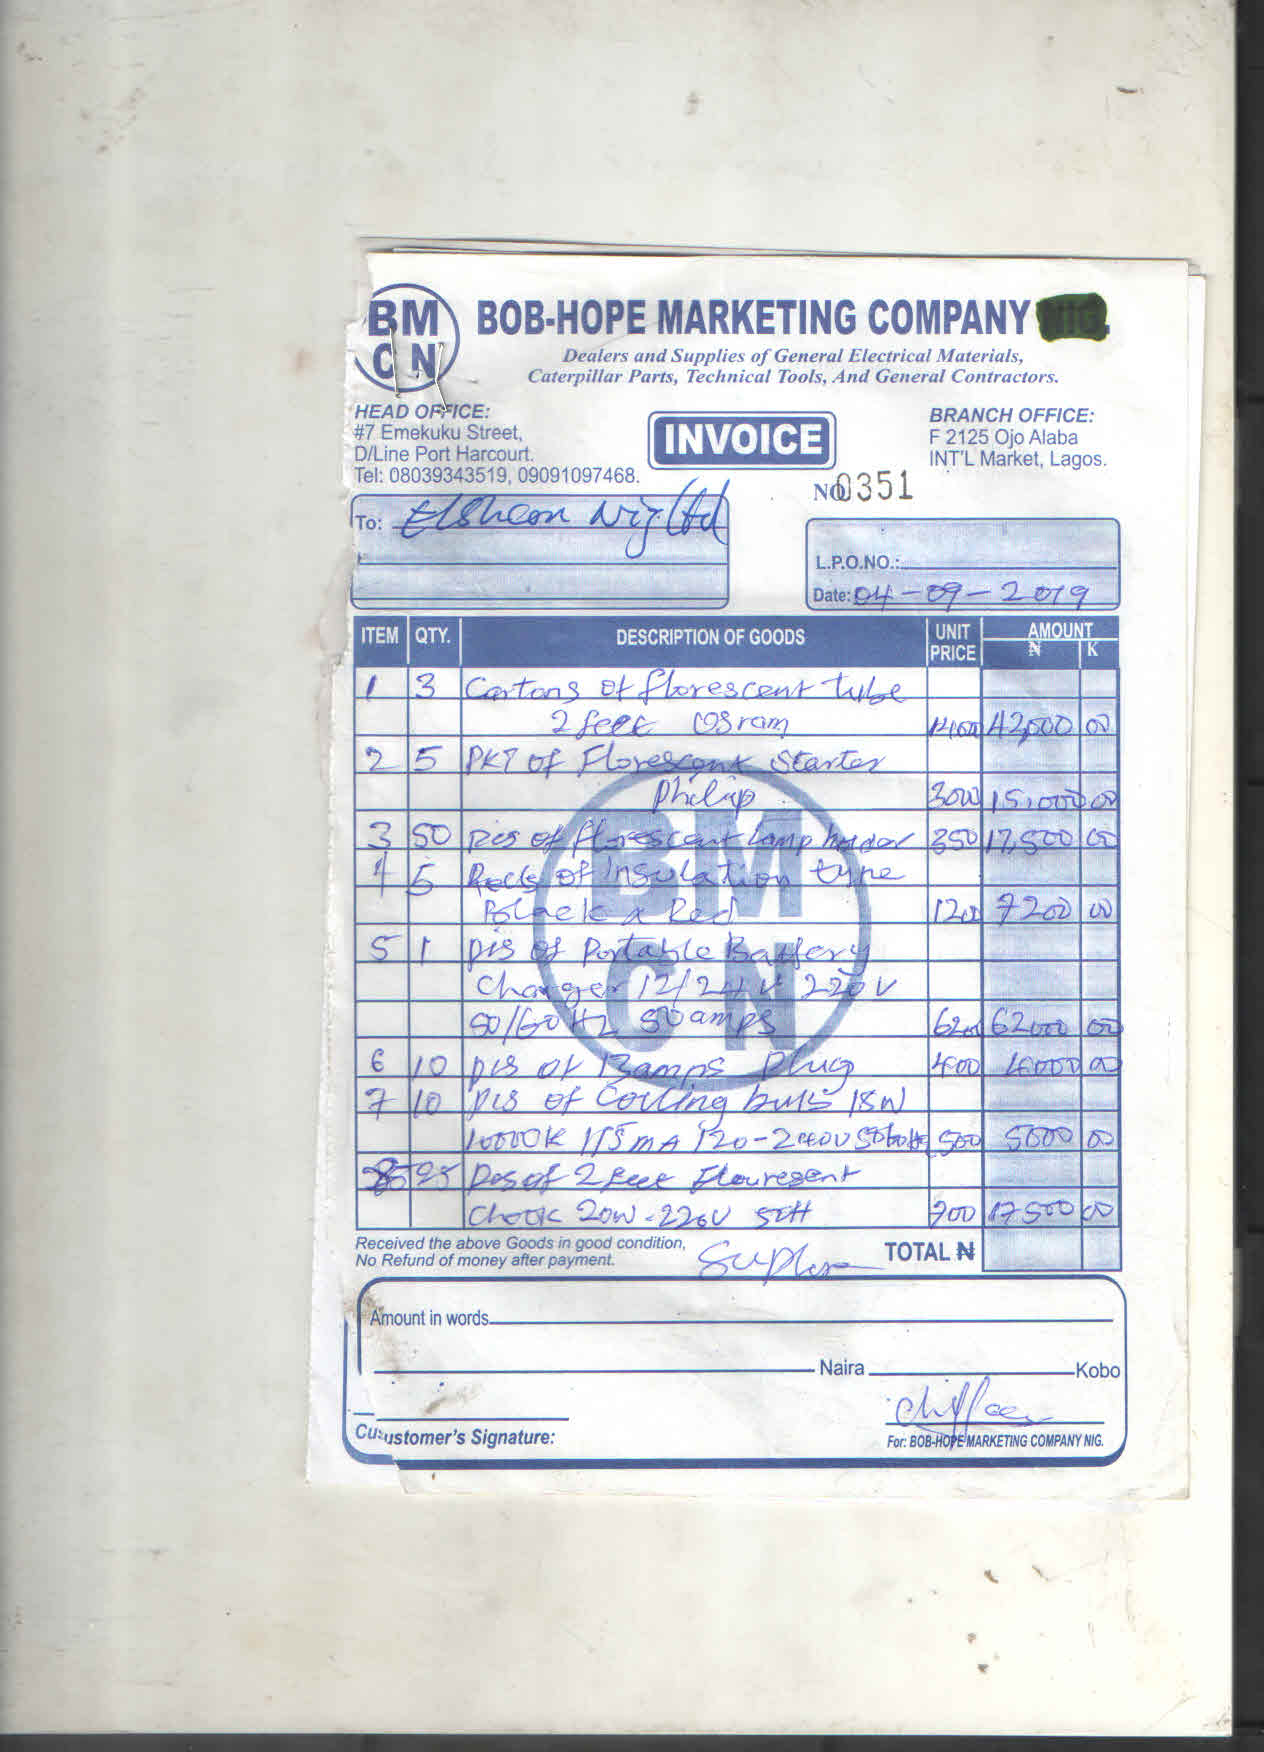 BM
CN
BOB-HOPE MARKETING COMPANY NIG.
Dealers and Supplies of General Electrical Materials,
Caterpillar Parts, Technical Tools, And General Contractors.
HEAD OFFICE:
#7 Emekuku Street,
D/Line Port Harcourt.
Tel: 08039343519, 09091097468.
INVOICE
BRANCH OFFICE:
F 2125 Ojo Alaba
INT'L Market, Lagos.
NO 0351
To: Elsheon Nig Ltd
L.P.O.NO.:
Date: 04-09-2019
ITEM QTY. DESCRIPTION OF GOODS UNIT PRICE AMOUNT ₦ K
1 3 Cartons of florescent tube
2 feet Osram 14000 42,000 00
2 5 PKT of Florescent Starter
Philip 3000 15,000 00
3 50 Pcs of florescent lamp holder 350 17,500 00
4 5 Rolls of Insulation type
Black & Red 1200 7200 00
5 1 Pcs of Portable Battery
Charger 12/24V 220V
50/60Hz 50amps 62000 00
6 10 pcs of 13amps Plug 400 4000 00
7 10 pcs of Coiling bulb 18W
10000K 115mA 120-240V 50/60Hz 500 5000 00
25 Pcs of 2 feet Flouresent
Chook 20W-220V 50H 700 17500 00
Received the above Goods in good condition,
No Refund of money after payment.
TOTAL ₦
Amount in words
Naira Kobo
Customer's Signature:
For: BOB-HOPE MARKETING COMPANY NIG.
BM
CN